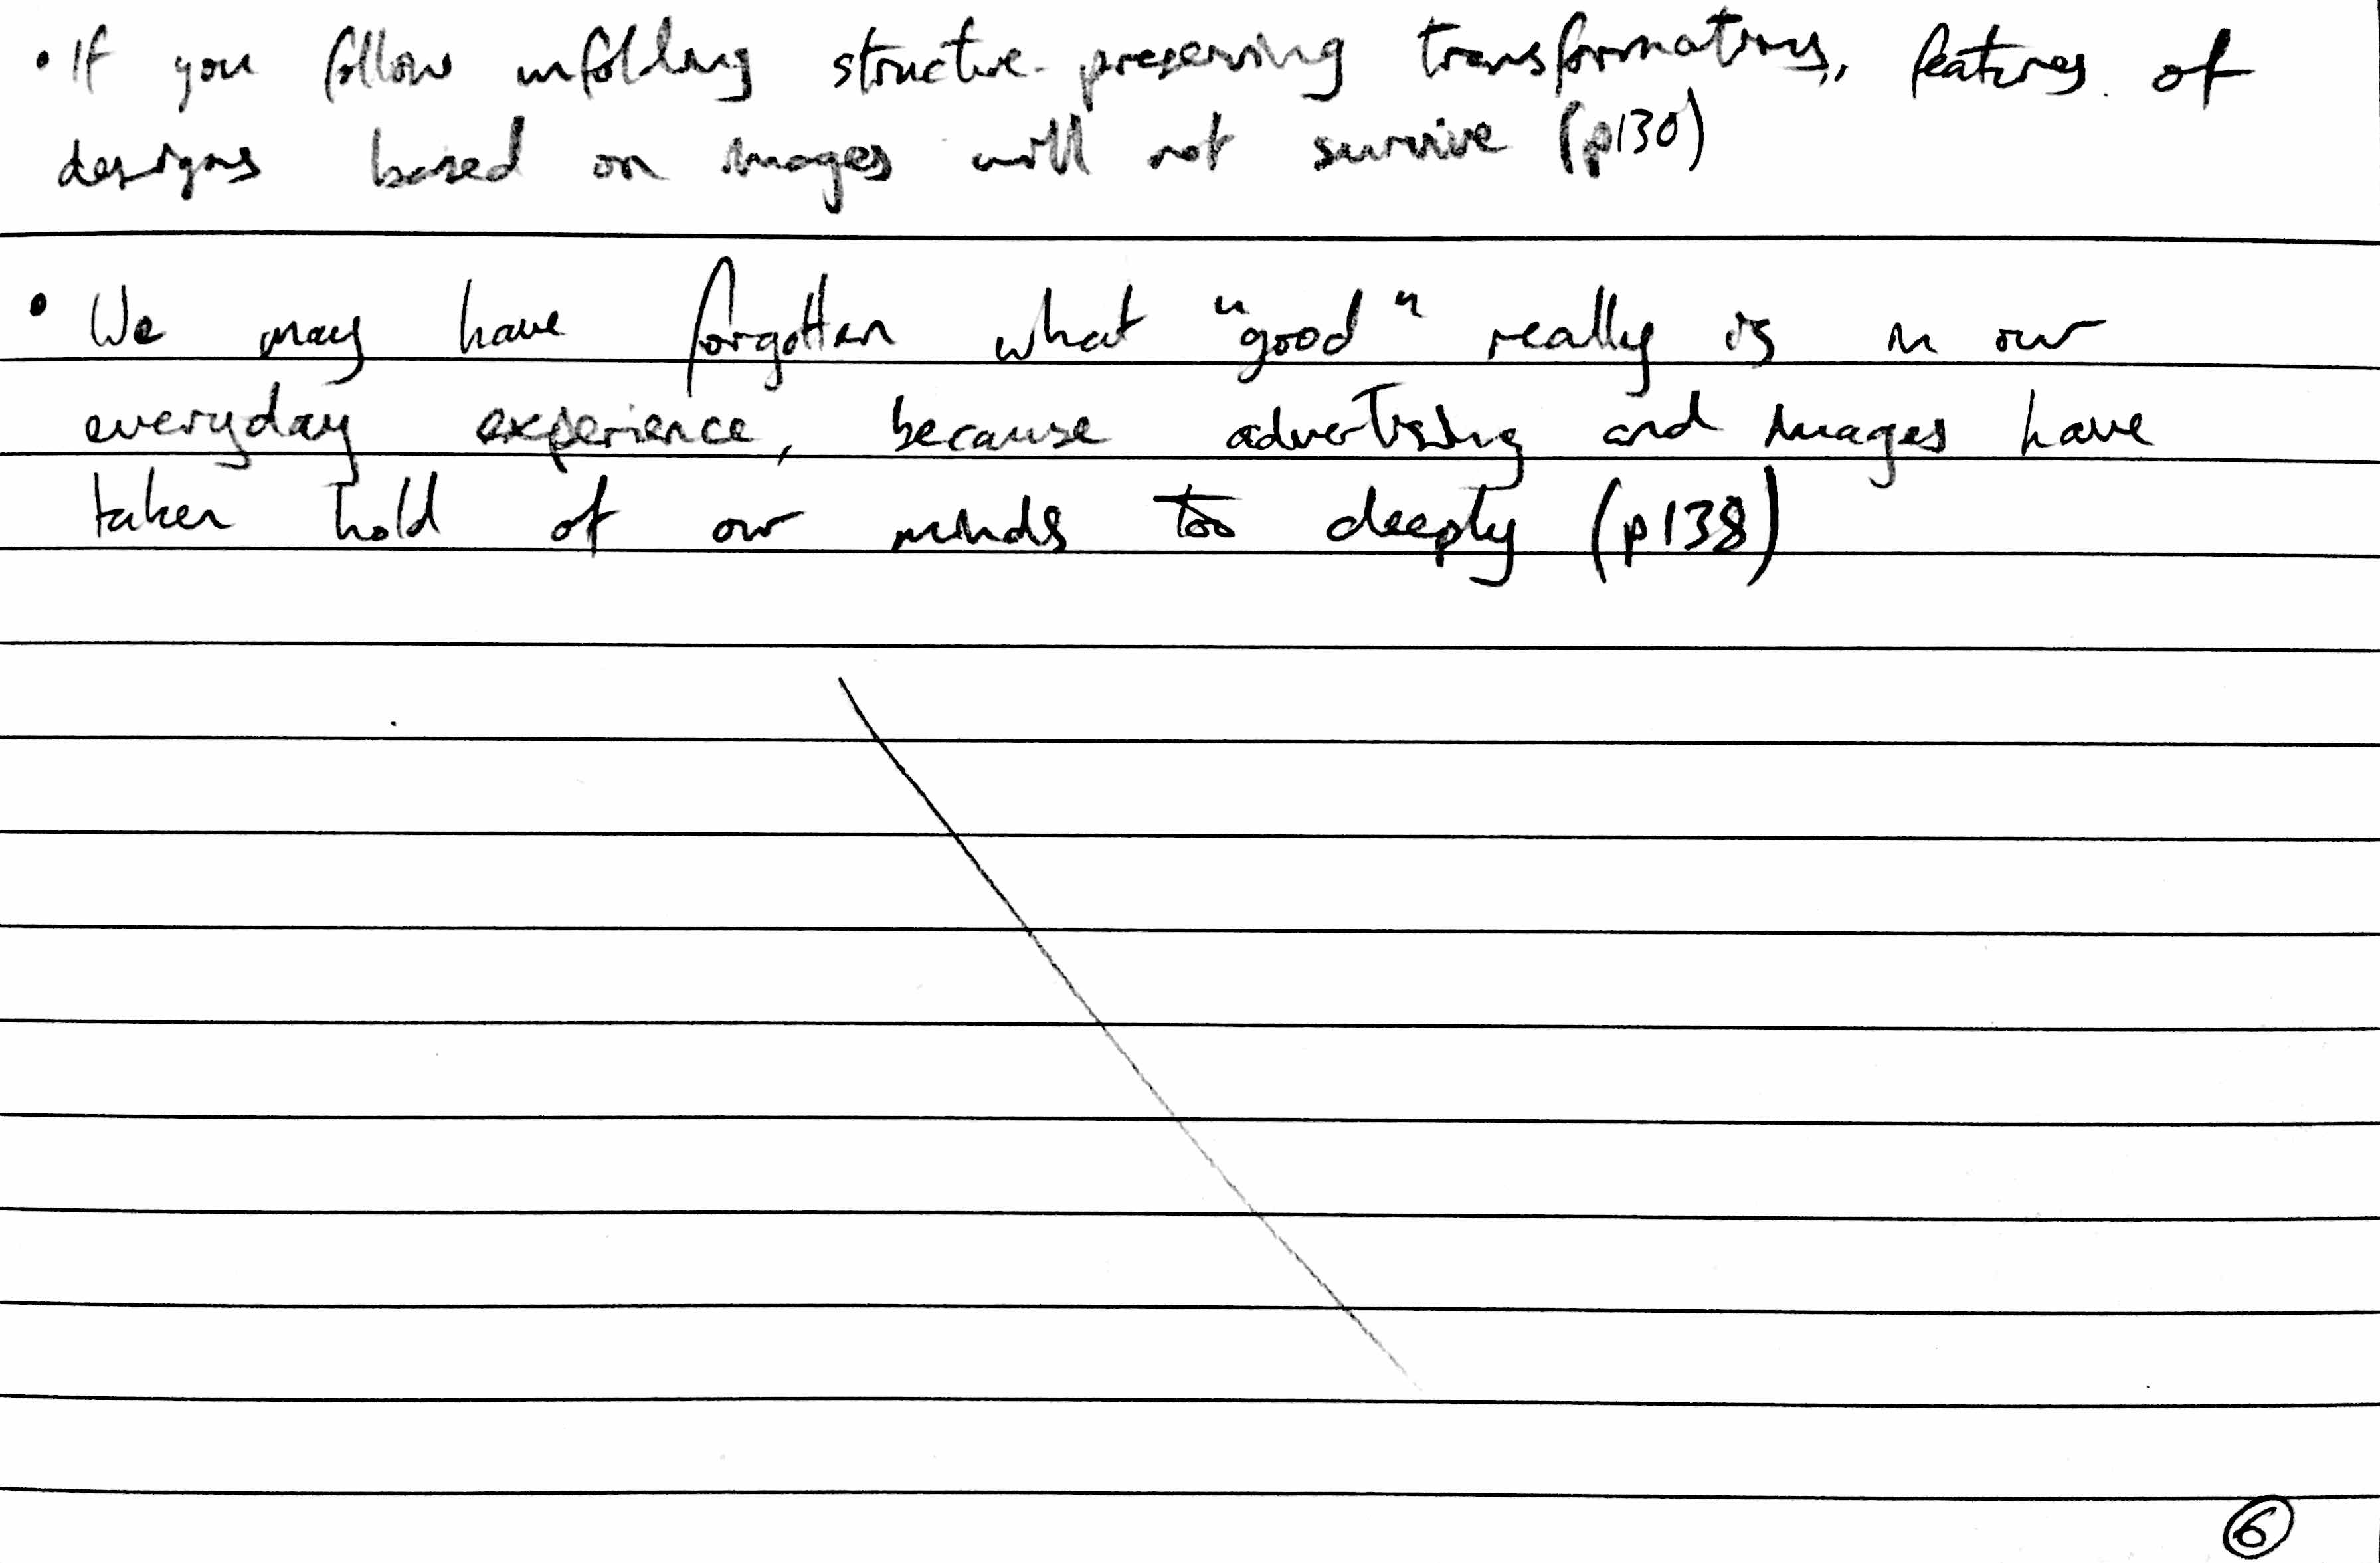 • If you follow unfolding structure-preserving transformations, features of
designs based on images will not survive (p130)
• We may have forgotten what "good" really is in our
everyday experience, because advertising and images have
taken hold of our minds too deeply (p138)
6